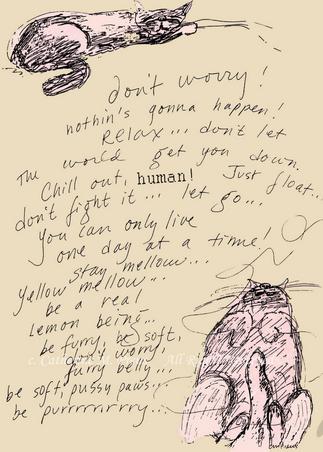 don't worry!
nothin's gonna happen!
Relax... don't let
the world get you down.
Chill out, human! Just float...
don't fight it... let go...
You can only live
one day at a time!
stay mellow...
Yellow mellow...
be a real
Lemon being...
be furry, be soft,
don't worry,
furry belly...
be soft, pussy paws...
be purrrrrrrry...